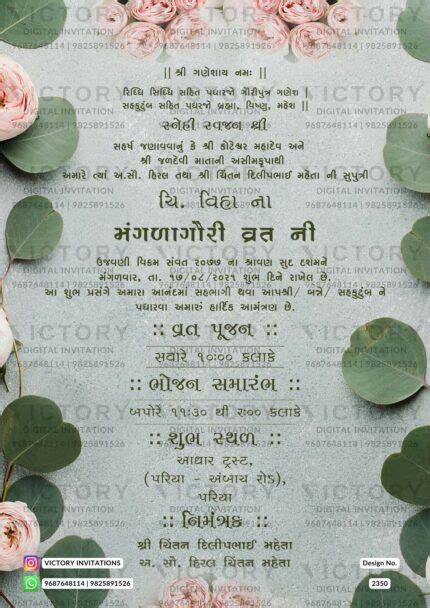 || શ્રી ગણેશાય નમઃ ||
રિધ્ધિ સિધ્ધિ સહિત પધારજો ગૌરીપુત્ર ગણેશ |
સહકુટુંબ સહિત પધારજો બ્રહ્મા, વિષ્ણુ, મહેશ ||
સ્નેહી સ્વજન શ્રી
સહર્ષ જણાવવાનું કે શ્રી કોટેશ્વર મહાદેવ અને
શ્રી જળદેવી માતાની અસીમકૃપાથી
અમારે ત્યાં અ.સૌ. હિરલ તથા શ્રી ચિંતન દિલીપભાઈ મહેતા ની સુપુત્રી
ચિ. વિહા ના
મંગળાગૌરી વ્રત ની
ઉજવણી વિક્રમ સંવત ૨૦૭૭ ના શ્રાવણ સુદ દશમને
મંગળવાર, તા. ૧૭/૦૮/૨૦૨૧ શુભ દિને રાખેલ છે.
આ શુભ પ્રસંગે અમારા આનંદમાં સહભાગી થવા આપશ્રી/ બન્ને/ સહકુટુંબ ને
પધારવા અમારું હાર્દિક આમંત્રણ છે.
:: વ્રત પૂજન ::
સવારે ૧૦:૦૦ કલાકે
:: ભોજન સમારંભ ::
બપોરે ૧૧:૩૦ થી ૨:૦૦ કલાકે
:: શુભ સ્થળ ::
આધાર ટ્રસ્ટ,
(પરિયા - અંબાચ રોડ),
પરિયા
:: નિમંત્રક ::
શ્રી ચિંતન દિલીપભાઈ મહેતા
અ. સૌ. હિરલ ચિંતન મહેતા
VICTORY INVITATIONS
9687648114 | 9825891526
Design No.
2350
VICTORY
DIGITAL INVITATION
9687648114 | 9825891526